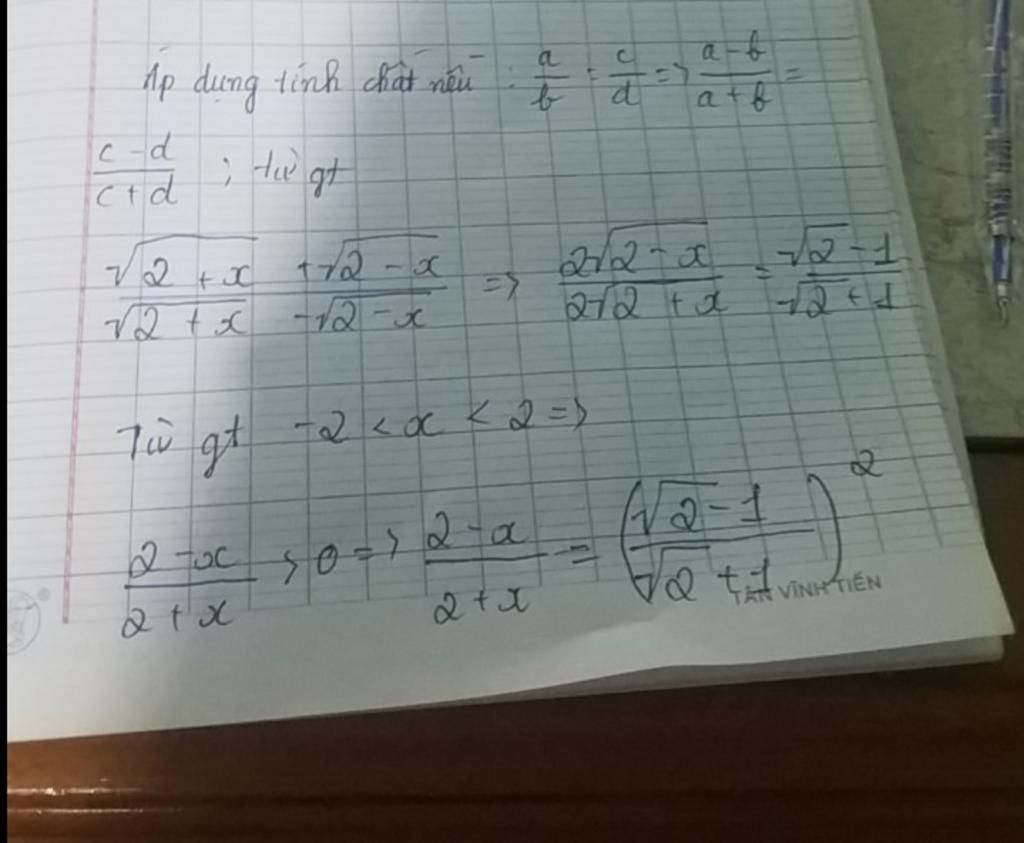 Áp dụng tính chất nếu : a/b = c/d => (a-b)/(a+b) =
(c-d)/(c+d) ; từ gt
(√(2+x) + √(2-x))/(√(2+x) - √(2-x)) => (2√(2-x))/(2√(2+x)) = (√2-1)/(√2+1)
Từ gt -2 < x < 2 =>
(2-x)/(2+x) > 0 => (2-x)/(2+x) = ((√2-1)/(√2+1))^2
TÂN VĨNH TIẾN